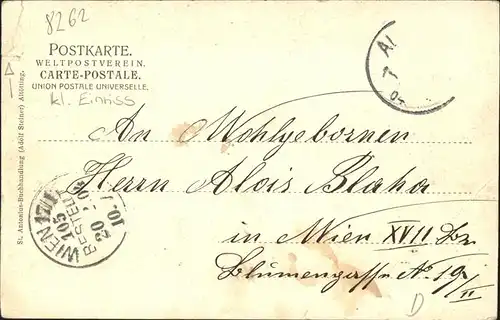 8262
POSTKARTE.
WELTPOSTVEREIN.
CARTE-POSTALE.
UNION POSTALE UNIVERSELLE.
kl. Einriss
St. Antonius-Buchhandlung (Adolf Steiner) Altötting.
An Wohlgebornen
Herrn Alois Blaha
in Wien XVII Bz
Blumengasse No 19/II
WIEN 17/1
105
BESTELLT
20
D